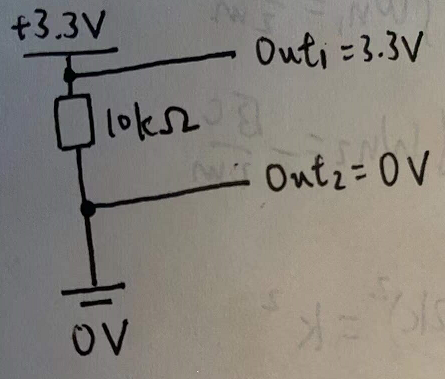 +3.3V
Out₁ = 3.3V
10kΩ
Out₂ = 0V
0V